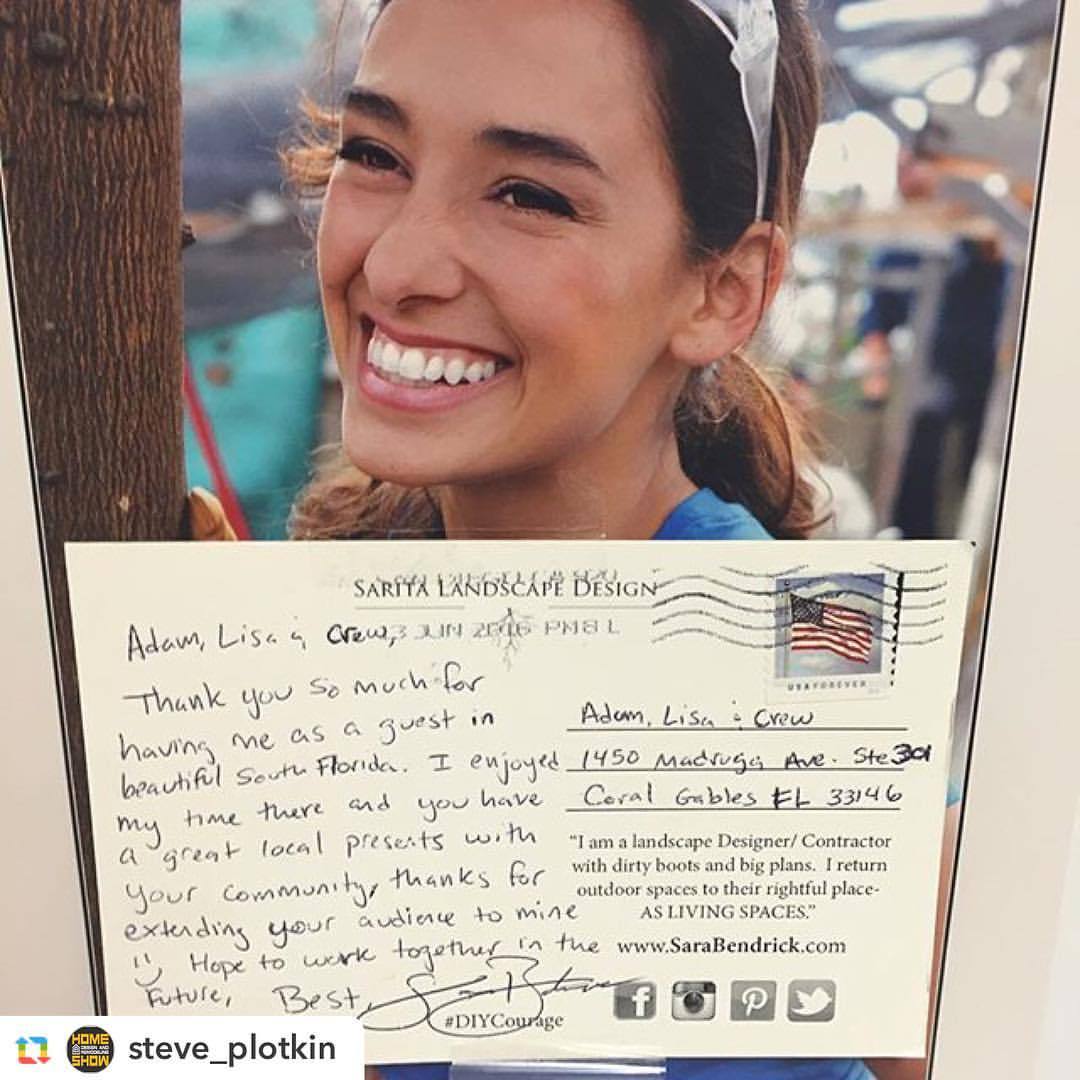 SARITA LANDSCAPE DESIGN
3 JUN 2016 PM 8 L
USA FOREVER
Adam, Lisa & Crew,
Thank you so much for
having me as a guest in
beautiful South Florida. I enjoyed
my time there and you have
a great local presents with
your community, thanks for
extending your audience to mine
:) Hope to work together in the
Future, Best,
Adam, Lisa & Crew
1450 Madruga Ave. Ste 301
Coral Gables FL 33146
"I am a landscape Designer/ Contractor
with dirty boots and big plans. I return
outdoor spaces to their rightful place-
AS LIVING SPACES."
www.SaraBendrick.com
#DIYCourage
HOME
DESIGN AND
REMODELING
SHOW
steve_plotkin